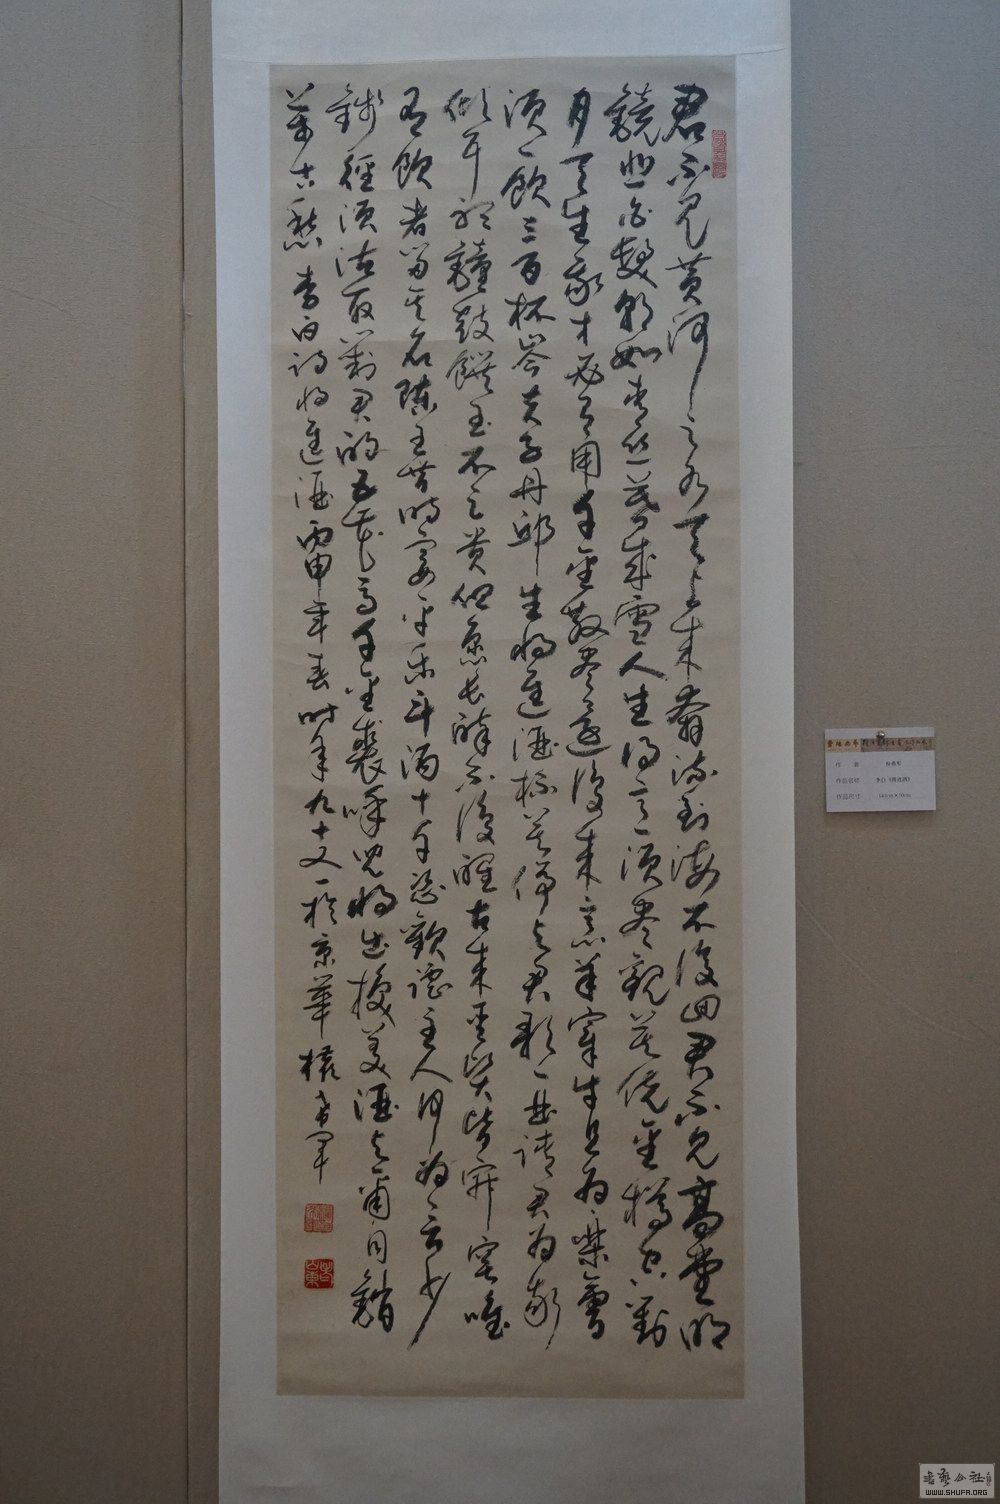 君不见黄河之水天上来奔流到海不復回君不见高堂明
鏡悲白髮朝如青丝暮成雪人生得意须尽觀莫使金樽空對
月天生我才必有用千金散尽還復来烹羊宰牛且为樂會
须一飲三百杯岑夫子丹邱生将進酒杯莫停与君歌一曲請君为我
倾耳听鐘鼓饌玉不足贵但愿长醉不復醒古来聖贤皆寂寞唯
有飲者留其名陳王昔时宴平乐斗酒十千恣歡謔主人何为言少
錢徑须沽取對君酌五花马千金裘呼兒将出换美酒与爾同銷
萬古愁 李白诗将進酒丙申年春时年九十又一於京華 權希軍
作 者 权希军
作品名称 李白《将进酒》
作品尺寸 141cm×50cm
书艺公社
WWW.SHUFA.ORG